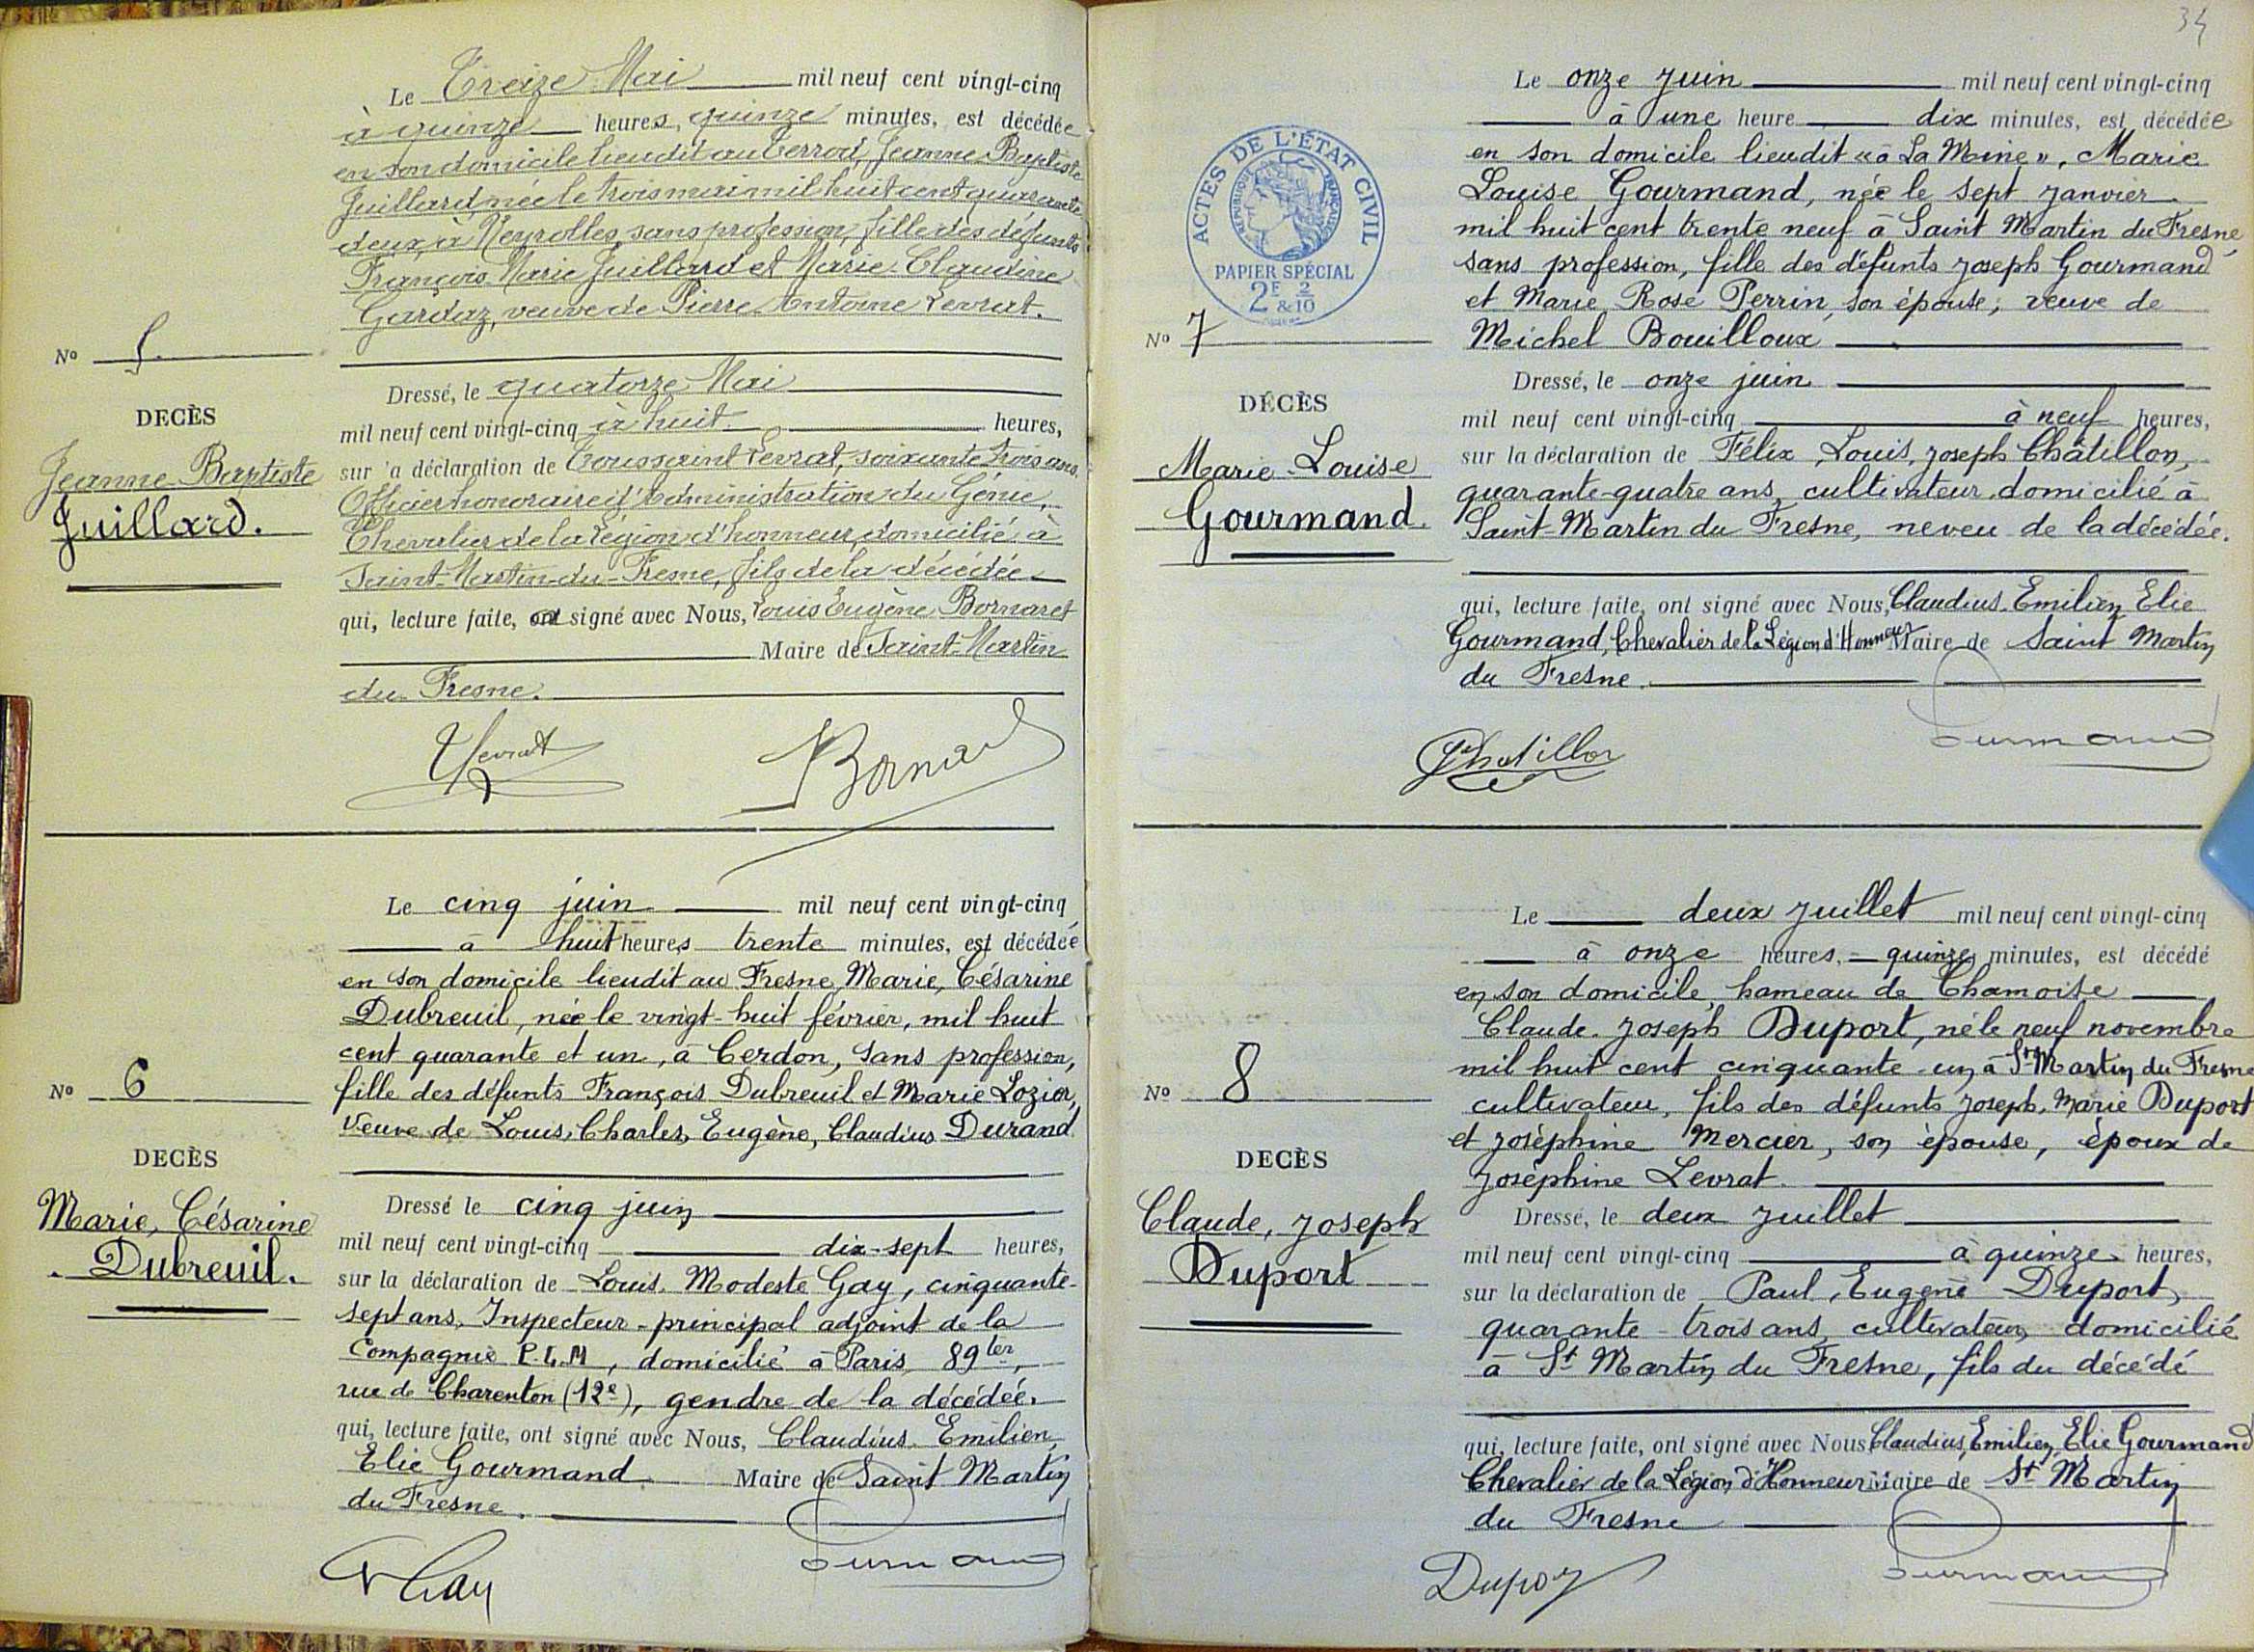 Le Treize Mai mil neuf cent vingt-cinq
à quinze heures, quinze minutes, est décédée
en son domicile lieudit au Cerrod, Jeanne Baptiste
Juillard, née le trois mai mil huit cent quarante
deux, à Neyrolles, sans profession, fille des défunts
François Marie Juillard et Marie Claudine
Gardaz, veuve de Pierre Antoine Levrat.
No 5
DECÈS
Jeanne Baptiste
Juillard.
Dressé, le quatorze Mai
mil neuf cent vingt-cinq à huit heures,
sur la déclaration de Toussaint Levrat, soixante trois ans,
Officier honoraire d'Administration du Génie,
Chevalier de la Légion d'honneur, domicilié à
Saint-Martin-du-Fresne, fils de la décédée
qui, lecture faite, ont signé avec Nous, Louis Eugène Bornaret
Maire de Saint-Martin
du Fresne.
TLevrat
Bornaret
Le cinq juin mil neuf cent vingt-cinq
à huit heures trente minutes, est décédée
en son domicile lieudit au Fresne, Marie, Césarine
Dubreuil, née le vingt-huit février, mil huit
cent quarante et un, à Cerdon, sans profession,
fille des défunts François Dubreuil et Marie Lozier,
Veuve de Louis, Charles, Eugène, Claudius Durand
No 6
DECÈS
Marie, Césarine
Dubreuil.
Dressé le cinq juin
mil neuf cent vingt-cinq dix-sept heures,
sur la déclaration de Louis, Modeste Gay, cinquante-
sept ans, Inspecteur-principal adjoint de la
Compagnie P.L.M, domicilié à Paris, 89 ter,
rue de Charenton (12e), gendre de la décédée.
qui, lecture faite, ont signé avec Nous, Claudius, Emilien,
Elie Gourmand Maire de Saint Martin
du Fresne.
Gay
Gourmand
34
Le onze juin mil neuf cent vingt-cinq
à une heure dix minutes, est décédée
en son domicile lieudit «à La Meine», Marie
Louise Gourmand, née le sept janvier
mil huit cent trente neuf à Saint Martin du Fresne
sans profession, fille des défunts Joseph Gourmand
et Marie Rose Perrin, son épouse; veuve de
Michel Bouilloux
ACTES DE L'ÉTAT CIVIL
RÉPUBLIQUE FRANÇAISE
PAPIER SPÉCIAL
2F & 2/10
No 7
DÉCÈS
Marie-Louise
Gourmand.
Dressé, le onze juin
mil neuf cent vingt-cinq à neuf heures,
sur la déclaration de Félix, Louis, Joseph Châtillon,
quarante-quatre ans, cultivateur, domicilié à
Saint-Martin du Fresne, neveu de la décédée.
qui, lecture faite, ont signé avec Nous, Claudius, Emilien Elie
Gourmand, Chevalier de la Légion d'Honneur Maire de Saint Martin
du Fresne.
Chatillon
Gourmand
Le deux juillet mil neuf cent vingt-cinq
à onze heures, quinze minutes, est décédé
en son domicile, hameau de Chamoise
Claude, Joseph Duport, né le neuf novembre
mil huit cent cinquante-un à St Martin du Fresne
cultivateur, fils des défunts Joseph, Marie Duport
et Joséphine Mercier, son épouse, époux de
Joséphine Levrat.
No 8
DECÈS
Claude, Joseph
Duport
Dressé, le deux juillet
mil neuf cent vingt-cinq à quinze heures,
sur la déclaration de Paul, Eugène Duport,
quarante-trois ans, cultivateur, domicilié
à St Martin du Fresne, fils du décédé
qui, lecture faite, ont signé avec Nous Claudius, Emilien, Elie Gourmand
Chevalier de la Légion d'Honneur Maire de St Martin
du Fresne
Duport
Gourmand